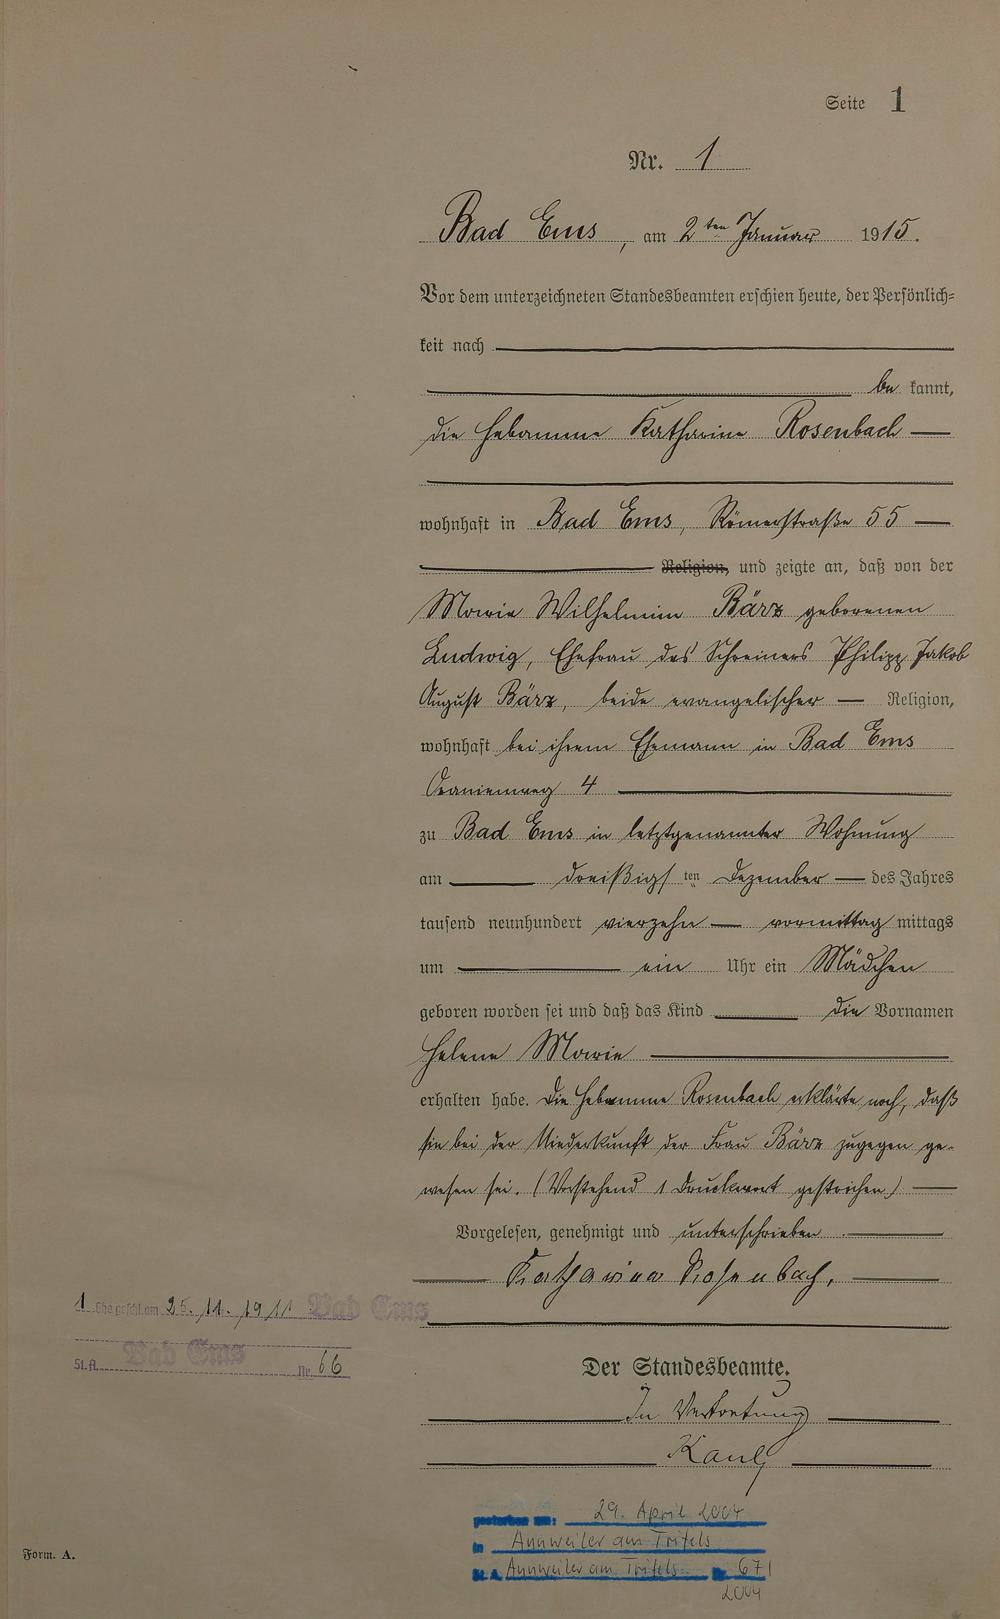 Seite 1
Nr. 1
Bad Ems, am 2ten Januar 1915.
Vor dem unterzeichneten Standesbeamten erschien heute, der Persönlich=
keit nach
be kannt,
die Hebamme Katharine Rosenbach
wohnhaft in Bad Ems, Römerstraße 55
Religion, und zeigte an, daß von der
Marie Wilhelmine Bärz geborenen
Ludwig, Ehefrau des Schreiners Philipp Jakob
August Bärz, beide evangelischer Religion,
wohnhaft bei ihrem Ehemann in Bad Ems
Oranienweg 4
zu Bad Ems in letztgenannter Wohnung
am dreißigsten Dezember des Jahres
tausend neunhundert vierzehn vormittag mittags
um ein Uhr ein Mädchen
geboren worden sei und daß das Kind die Vornamen
Helene Marie
erhalten habe. Die Hebamme Rosenbach erklärte noch, daß
sie bei der Niederkunft der Frau Bärz zugegen ge-
wesen sei. (Vorstehend 1 Druckwort gestrichen)
Vorgelesen, genehmigt und unterschrieben
Katharina Rosenbach,
1 Ehe geschl. am 25. 11. 1911 Bad Ems
St. A. Bad Ems Nr. 66
Der Standesbeamte.
In Vertretung
Kaul
gestorben am: 29. April 2004
in Annweiler am Trifels
St. A. Annweiler am Trifels Nr. 671
2004
Form. A.